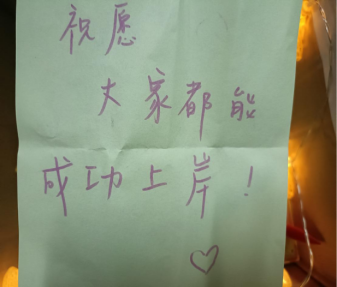 祝愿
大家都能
成功上岸!
♡